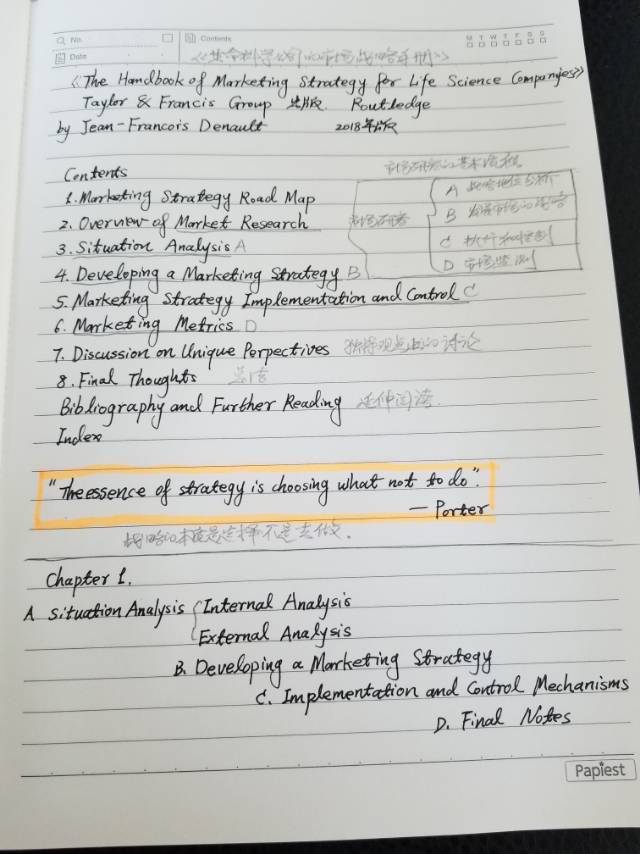 No.
Contents
M T W T F S S
Date
《生命科学公司的市场战略手册》
《The Handbook of Marketing Strategy for Life Science Companies》
Taylor & Francis Group 出版 Routledge
by Jean-Francois Denault 2018年出版
Contents
市场研究的基本流程
1. Marketing Strategy Road Map
A 战略地位分析
2. Overview of Market Research
市场研究
B 发展市场的战略
3. Situation Analysis A
C 执行和控制
4. Developing a Marketing Strategy B
D 市场监测
5. Marketing Strategy Implementation and Control C
6. Marketing Metrics D
7. Discussion on Unique Perpectives 独特观点的讨论
8. Final Thoughts 总结
Bibliography and Further Reading 延伸阅读.
Index
"The essence of strategy is choosing what not to do".
— Porter
战略的本质是选择不是去做.
Chapter 1.
A Situation Analysis Internal Analysis
External Analysis
B. Developing a Marketing Strategy
C. Implementation and Control Mechanisms
D. Final Notes
Papiest